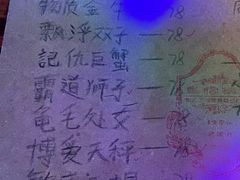 物质金牛—78
飘浮双子—78
記仇巨蟹—78
霸道狮子—78
龟毛处女—78
博爱天秤—78